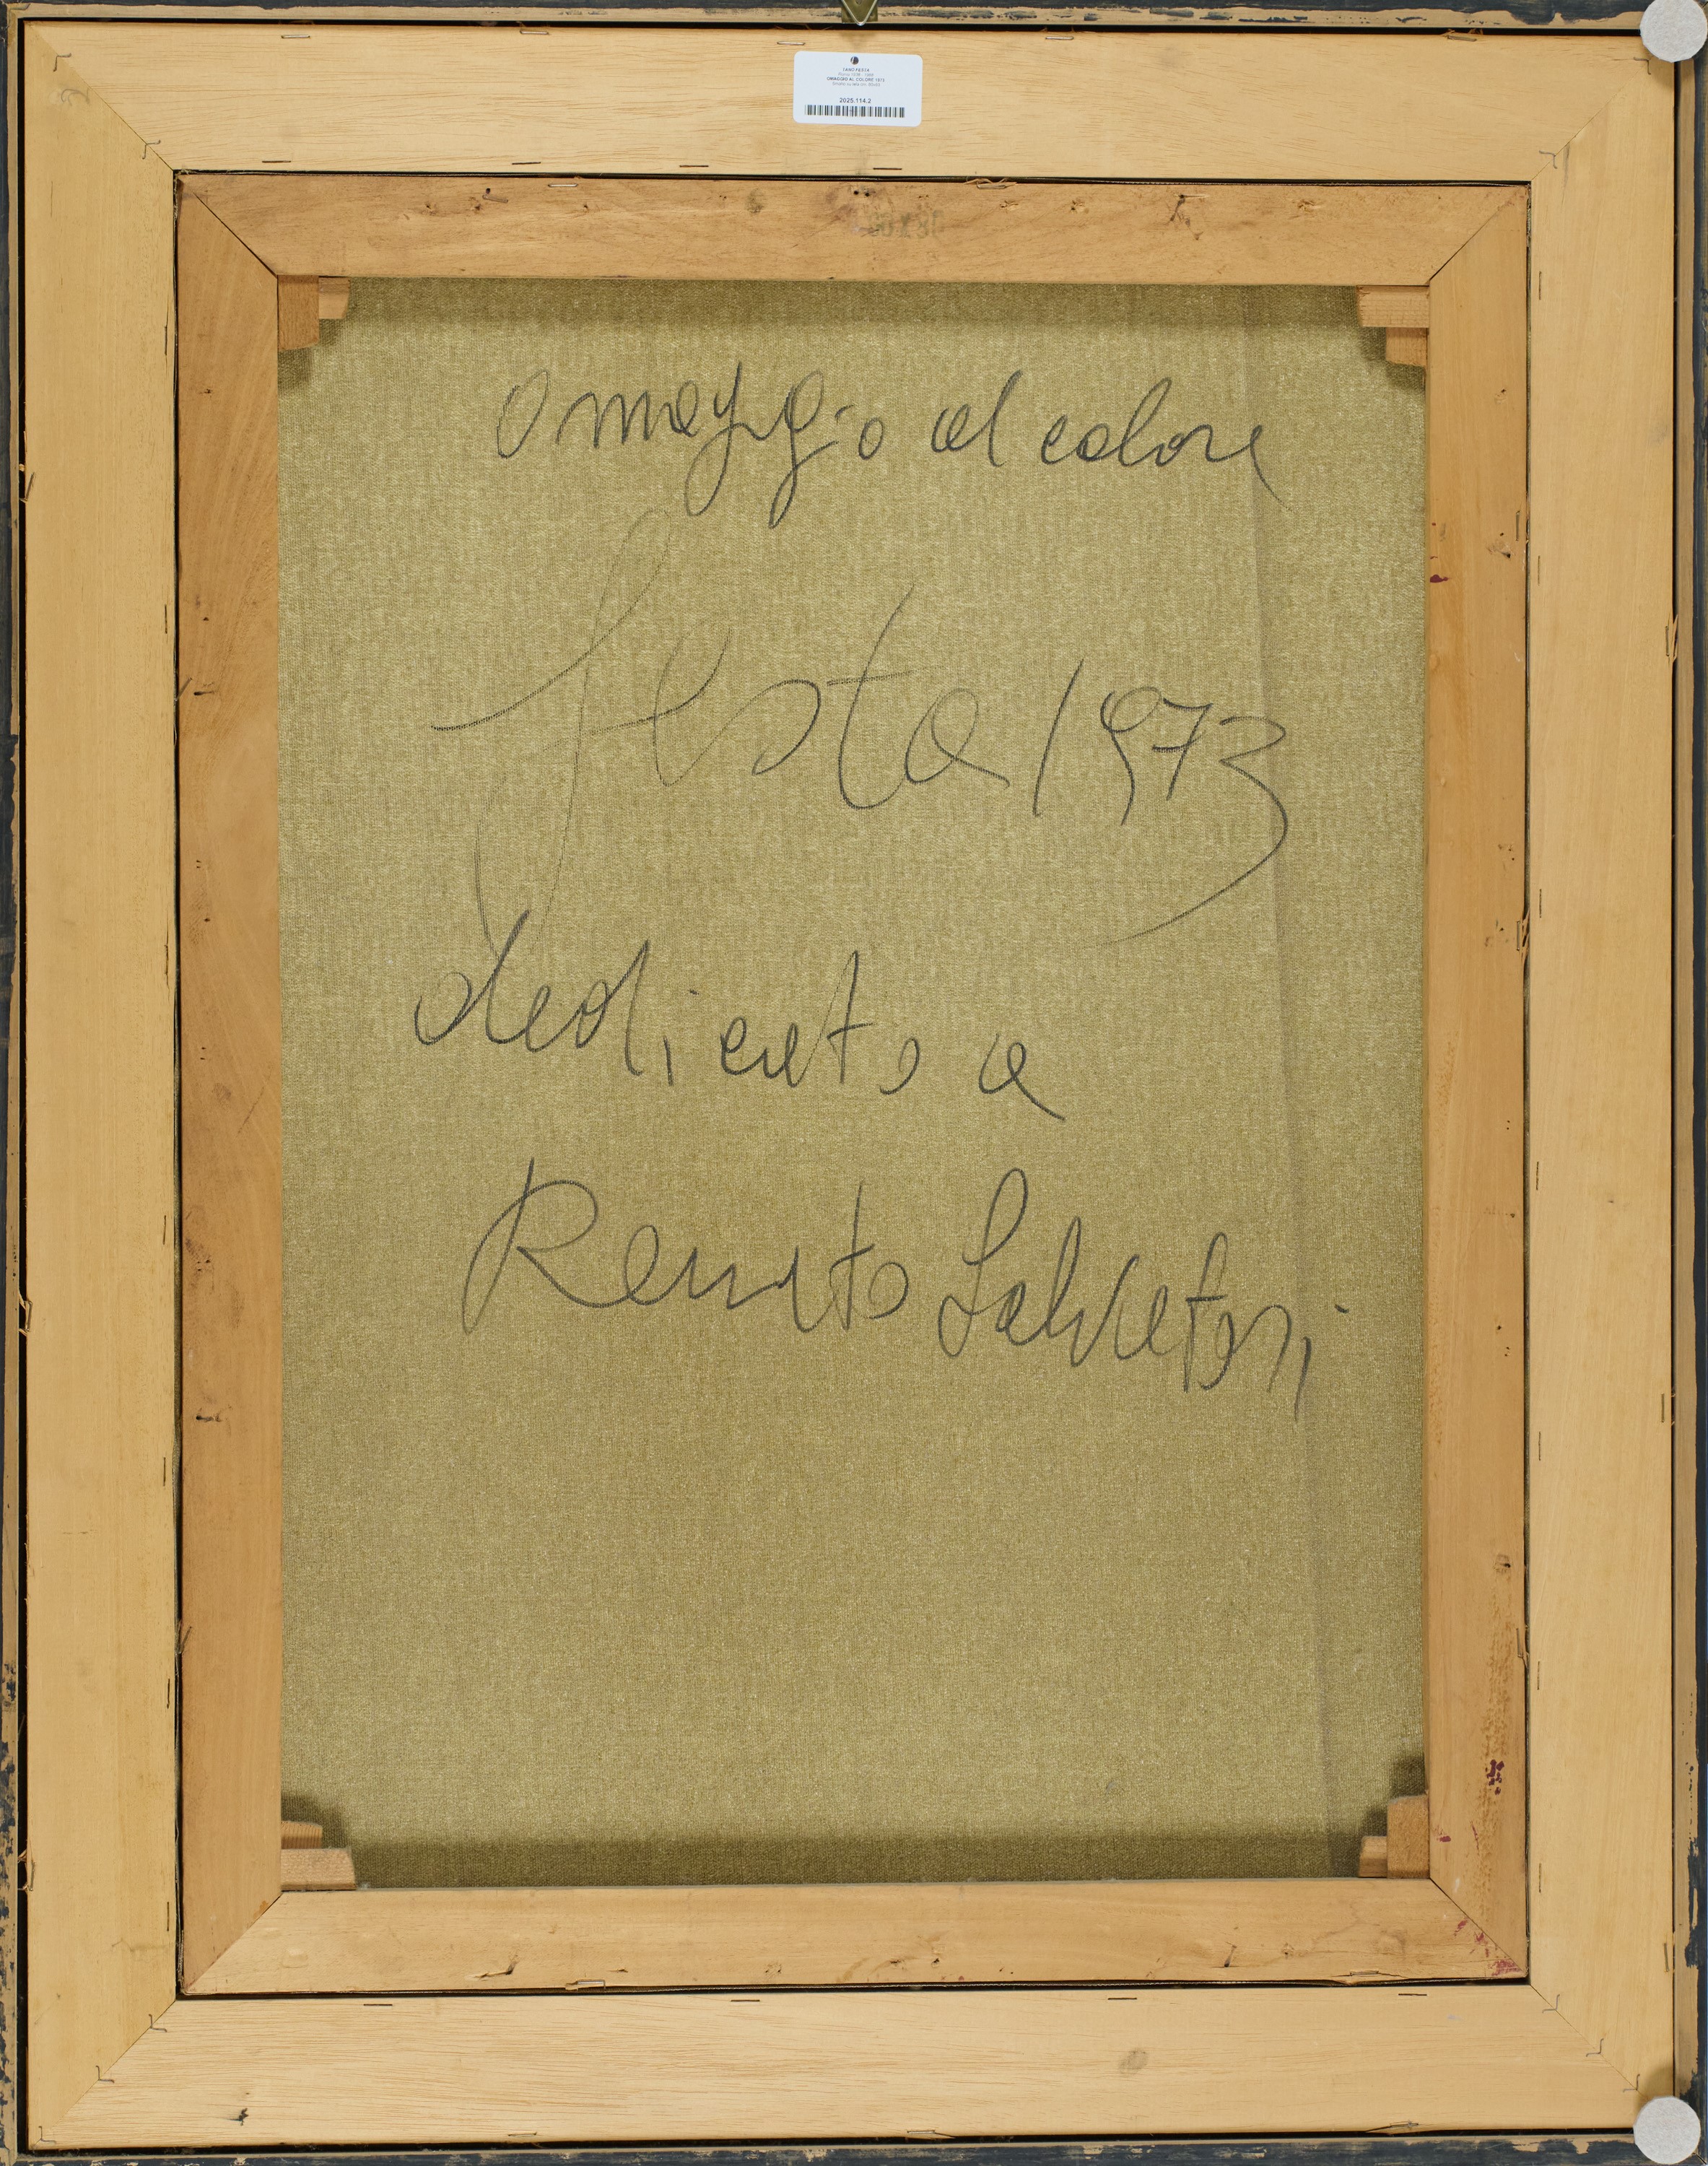 TANO FESTA
OMAGGIO AL COLORE 1973
2025.114.2
Omaggio al colore
festa 1973
dedicato a
Renato Salvatori